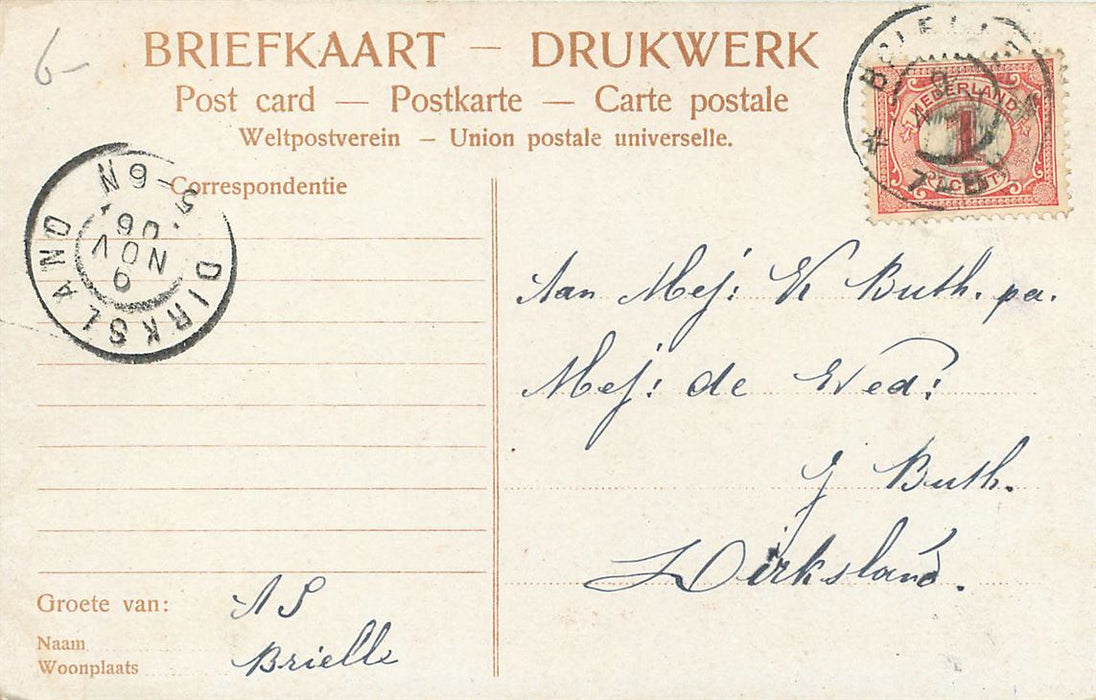 6-
BRIEFKAART — DRUKWERK
Post card — Postkarte — Carte postale
Weltpostverein — Union postale universelle.
NEDERLAND
1
CENT
DIRKSLAND
5-6N
NOV
06
Correspondentie
Aan Mej: K Buth. pa.
Mej: de Wed:
J Buth.
Dirksland.
Groete van:
AS
Naam
Woonplaats
Brielle